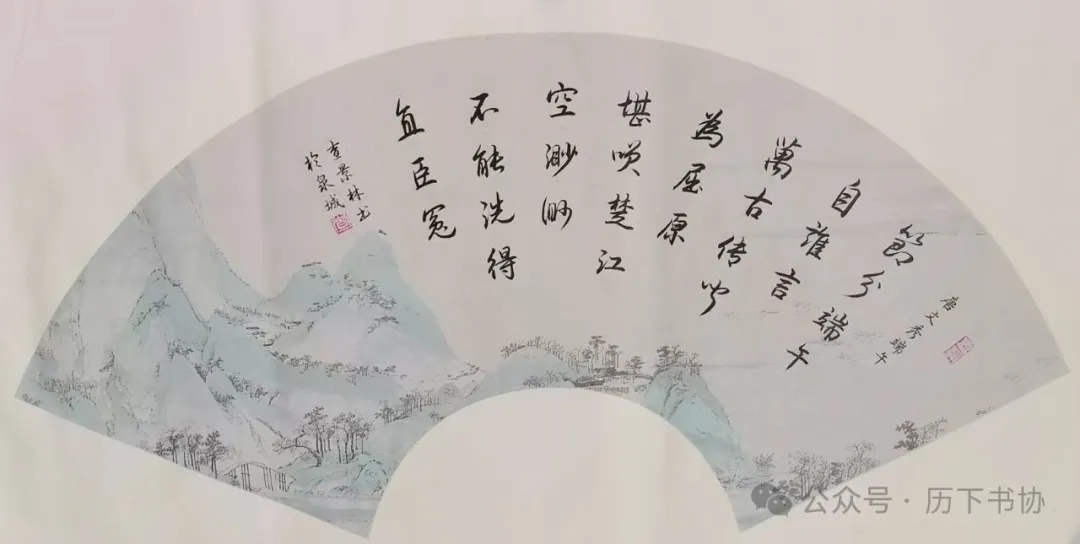 唐 文秀 端午
節分端午
自誰言
萬古传闻
為屈原
堪咲楚江
空渺渺
不能洗得
直臣冤
查景林书
於泉城
公众号·历下书协